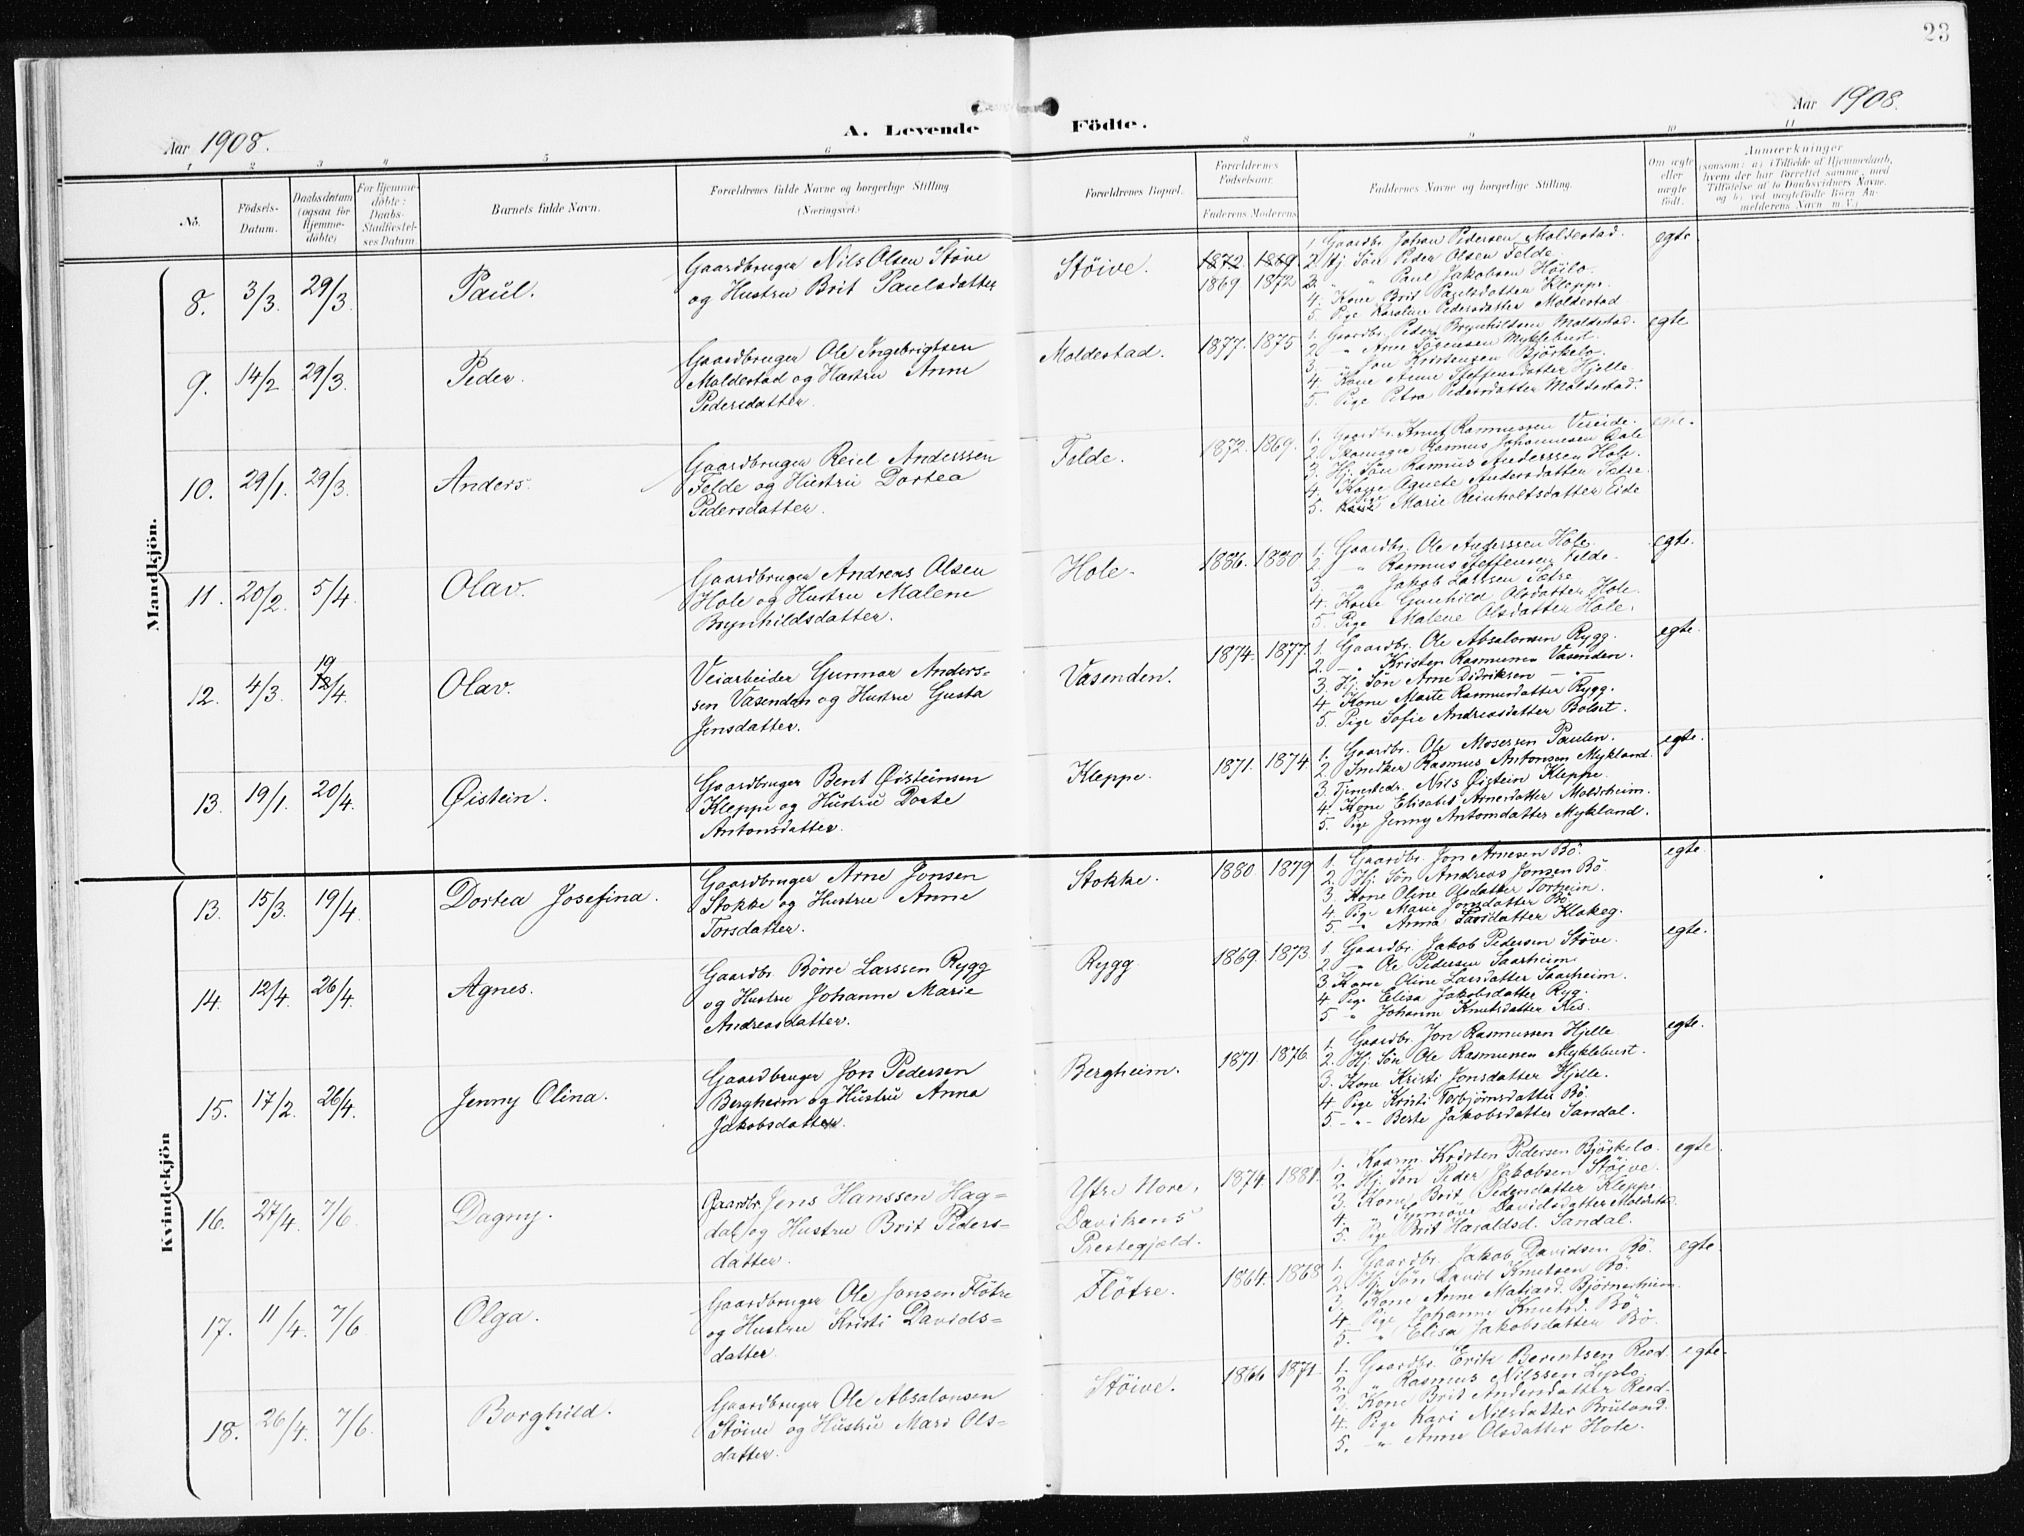 23
Aar 1908.
A. Levende Födte.
Aar 1908.
1 2 3 4 5 6 8 9 10 11
Nö.
Födsels-
Datum.
Daabsdatum
(ogsaa for
Hjemme-
döbte)
For Hjemme-
döbte:
Daabs-
Stadfæstel-
ses Datum.
Barnets fulde Navn.
Forældrenes fulde Navne og borgerlige Stilling
(Næringsvei.)
Forældrenes Bopæl.
Forældrenes
Födselsaar.
Faderens Moderens
Faddernes Navne og borgerlige Stilling.
Om ægte
eller
uægte
födt.
Anmærkninger
(saasom: a) i Tilfælde af Hjemmedaab,
hvem der har forrettet samme, med
Tilföielse af to Daabsvidners Navne.
og b) ved uægtefödte Börn An-
melderens Navn m. V.)
Mandkjön.
8. 3/3 29/3 Paul.
Gaardbruger Nils Olsen Støve
og Hustru Brit Paulsdatter
Støive.
1872. 1869
1869 1872
1. Gaardbr. Johan Pedersen Moldestad.
2. Hj. Søn Peder Olsen Felde.
3. " Paul Jakobsen Høilo.
4. Kone Brit Paulsdatter Kleppe.
5. Pige Karoline Pedersdatter Moldestad
egte
9. 14/2 29/3 Peder.
Gaardbruger Ole Ingebrigtsen
Moldestad og Hustru Anne
Pedersdatter.
Moldestad.
1877. 1875
1. Gaardbr. Peder Brynhildsen Moldestad.
2. " Arne Sørensen Myklebust.
3. " Jon Kristensen Bjørkelo.
4. Kone Anne Steffensdatter Hjelle
5. Pige Petra Pedersdatter Moldestad.
egte
10. 29/1. 29/3. Anders.
Gaardbruger Reiel Anderssen
Felde og Hustru Dortea
Pedersdatter.
Felde.
1872. 1869.
1. Gaardbr. Knut Rasmussen Vereide.
2. Skomager Rasmus Johannesen Dale
3. Hj. Søn Rasmus Anderssen Hole.
4. Kone Agnete Andersdatter Sætre.
5. Pige Marie Reinholtsdatter Eide
egte.
11. 20/2. 5/4. Olav.
Gaardbruger Andreas Olsen
Hole og Hustru Malene
Brynhildsdatter.
Hole.
1886. 1880
1. Gaardbr. Ole Anderssen Hole.
2. " Rasmus Steffensen Felde.
3. " Jakob Larssen Sætre
4. Kone Gunhild Olsdatter Hole.
5. Pige Malene Olsdatter Hole.
egte.
12. 4/3. 19
12/4. Olav.
Veiarbeider Gunnar Anders-
sen Vasenden og Hustru Gusta
Jensdatter.
Vasenden.
1874. 1877.
1. Gaardbr. Ole Absalonsen Rygg.
2. " Kristen Rasmussen Vasenden.
3. Hj. Søn Arne Didriksen — " —
4. Kone Marte Rasmusdatter Rygg.
5. Pige Sofie Andreasdatter Bolset.
egte.
13. 19/1. 20/4. Øistein.
Gaardbruger Bent Øisteinsen
Kleppe og Hustru Dorte
Antonsdatter.
Kleppe.
1871. 1874
1. Gaardbr. Ole Mosessen Paulen.
2. Snedker Rasmus Antonsen Mykland.
3. Tjenestedr. Nils Øistein Kleppe.
4. Kone Elisabet Arnesdatter Moldreheim.
5. Pige Jenny Antonsdatter Mykland.
egte.
Kvindekjön
13. 15/3. 19/4. Dortea Josefina.
Gaardbruger Arne Jonsen
Stokke og Hustru Anne
Torsdatter.
Stokke.
1880 1879
1. Gaardbr. Jon Arnesen Bö.
2. Hj. Søn Andreas Jonsen Bö
3. Kone Oline Olsdatter Torheim.
4. Pige Marie Jonsdatter Bö.
5. " Anna datter Klakeg.
egte.
14. 12/4. 26/4. Agnes.
Gaardbr. Børre Larssen Rygg
og Hustru Johanne Marie
Andreasdatter.
Rygg.
1869. 1873.
1. Gaardbr. Jakob Pedersen Støve.
2. " Ole Pedersen Saarheim.
3. Kone Oline Larsdatter Saarheim.
4. Pige Elisa Jakobsdatter Ryg.
5. " Johanne Knutsdatter Ris.
egte.
15. 17/2. 26/4. Jenny Olina.
Gaardbruger Jon Pedersen
Bergheim og Hustru Anna
Jakobsdatter.
Bergheim.
1871. 1876.
1. Gaardbr. Jon Rasmussen Hjelle
2. Hj. Søn Ole Rasmussen Myklebust.
3. Kone Kristi Jonsdatter Hjelle.
4. Pige Kristi Torbjørnsdatter Bö.
5. — " — Berte Jakobsdatter Sandal.
egte.
16. 27/4. 7/6. Dagny.
Gaardbr. Jens Hanssen Hag-
dal og Hustru Brit Peders-
datter.
Ytre Nore,
Davikens
Prestegjæld.
1874. 1881.
1. Kaarm. Kristen Pedersen Bjørkelo.
2. Hj. Søn Peder Jakobsen Støive.
3. Kone Brit Pedersdatter Kleppe.
4. " Synnøve Davidsdatter Moldestad.
5. Pige Brit Haraldsd. Sandal.
egte.
17. 11/4. 7/6. Olga.
Gaardbruger Ole Jonsen Fløtre
og Hustru Kristi Davids-
datter.
Fløtre.
1864. 1868
1. Gaardbr. Jakob Davidsen Bö.
2. Hj. Søn David Knutsen Bö.
3. Kone Anne Matiasd. Bjørnereheim
4. Pige Johanne Knutsd. Bö.
5. " Elisa Jakobsdatter Bö.
egte.
18. 26/4. 7/6. Borghild.
Gaardbruger Ole Absalonsen
Støive og Hustru Mari Ols-
datter.
Støive.
1866 1871.
1. Gaardbr. Erik Berentsen Reed.
2. " Rasmus Nilssen Lyslo.
3. Kone Brit Andersdatter Reed.
4. Pige Kari Nilsdatter Bruland.
5. — " — Anne Olsdatter Hole.
egte.